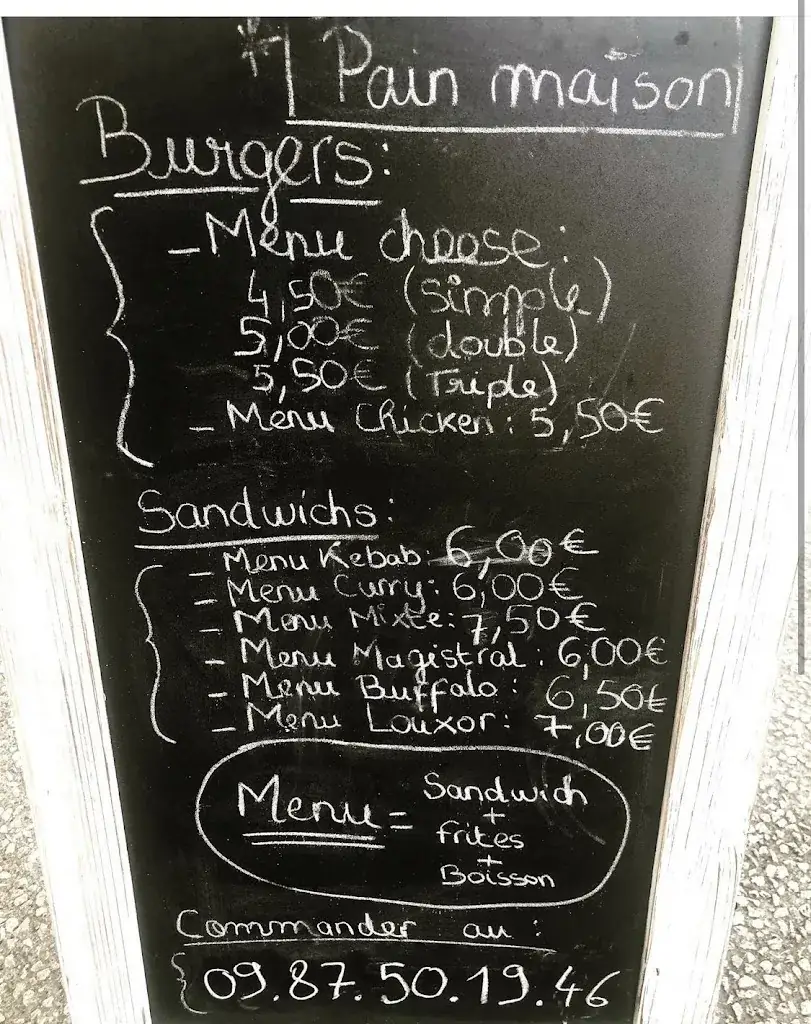 * Pain maison
Burgers:
- Menu cheese:
4,50€ (simple)
5,00€ (double)
5,50€ (Triple)
- Menu Chicken: 5,50€
Sandwichs:
- Menu Kebab: 6,00€
- Menu Curry: 6,00€
- Menu Mixte: 7,50€
- Menu Magistral: 6,00€
- Menu Buffalo: 6,50€
- Menu Louxor: 7,00€
Menu = Sandwich
+
frites
+
Boisson
Commander au:
09.87.50.19.46